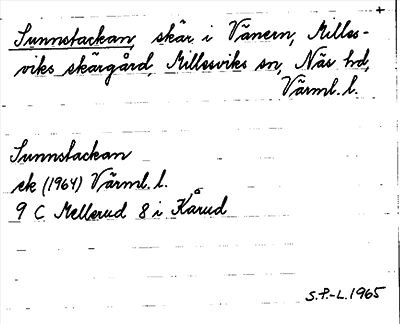 +
Sunnstackan, skär i Vänern, Milles-
viks skärgård, Millesviks sn, Näs hd,
Värml. l.
Sunnstackan
ek (1964) Värml. l.
9 C Mellerud 8 i Karud
S.P.-L. 1965